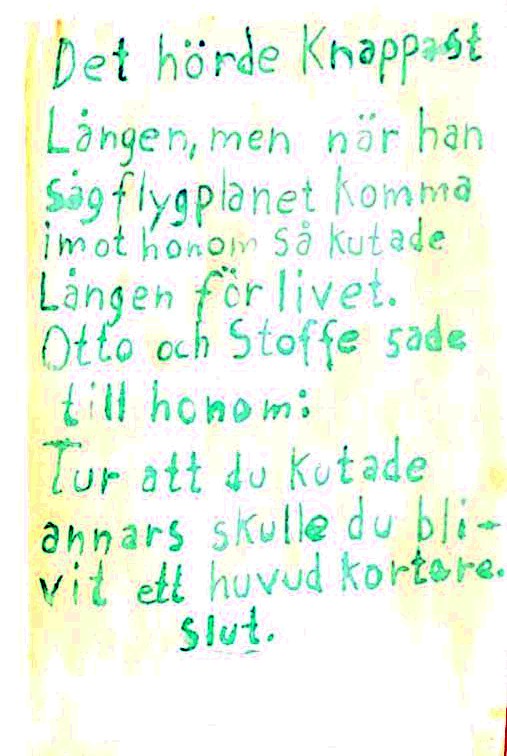 Det hörde Knappast
Lången, men när han
såg flygplanet komma
imot honom så kutade
Lången för livet.
Otto och Stoffe sade
till honom:
Tur att du kutade
annars skulle du bli-
vit ett huvud kortare.
Slut.